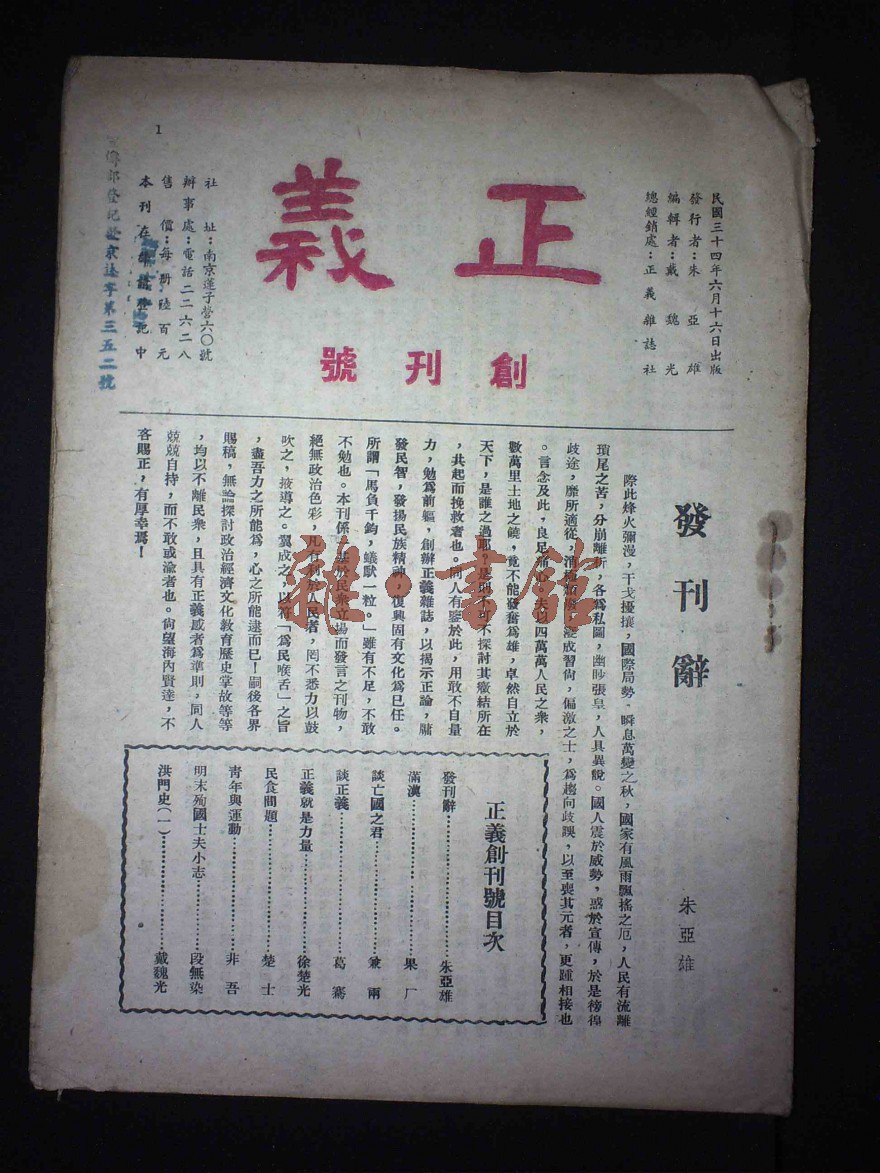 民國三十四年六月十六日出版
發行者：朱亞雄
編輯者：戴魏光
總經銷處：正義雜誌社
正義
創刊號
社址：南京蓮子營六〇號
辦事處：電話二二六二八
售價：每冊陸百元
本刊在登記中
傳部登記證京誌字第三五二號
1
發刊辭
朱亞雄
際此烽火彌漫，干戈擾攘，國際局勢，瞬息萬變之秋，國家有風雨飄搖之厄，人民有流離
瑣尾之苦，分崩離析，各爲私圖，幽眇張皇，人具異說。國人震於威勢，惑於宣傳，於是徬徨
歧途，靡所適從，成習尙，偏激之士，爲趨向歧誤，以至喪其元者，更踵相接也
。言念及此，良足痛心，夫以四萬萬人民之衆，
數萬里土地之饒，竟不能發奮爲雄，卓然自立於
天下，是誰之過耶？是則不可不探討其癥結所在
，共起而挽救者也。同人有鑒於此，用敢不自量
力，勉爲前驅，創辦正義雜誌，以揭示正論，牖
發民智，發揚民族精神，復興固有文化爲已任。
所謂「馬負千鈞，蟻馱一粒。」雖有不足，不敢
不勉也。本刊係基於民衆立場而發言之刊物，
絕無政治色彩，凡有利於人民者，罔不悉力以鼓
吹之，掖導之。翼成之，以符「爲民喉舌」之旨
，盡吾力之所能爲，心之所能逮而已！嗣後各界
賜稿，無論探討政治經濟文化教育歷史掌故等等
，均以不離民衆，且具有正義感者爲準則，同人
兢兢自持，而不敢或渝者也。尙望海內賢達，不
吝賜正，有厚幸焉！
正義創刊號目次
發刊辭……朱亞雄
滿漢……果厂
談亡國之君……兼兩
談正義……葛騫
正義就是力量……徐楚光
民食問題……楚士
靑年與運動……非吾
明末殉國士夫小志……段無染
洪門史（一）……戴魏光
雜·書館